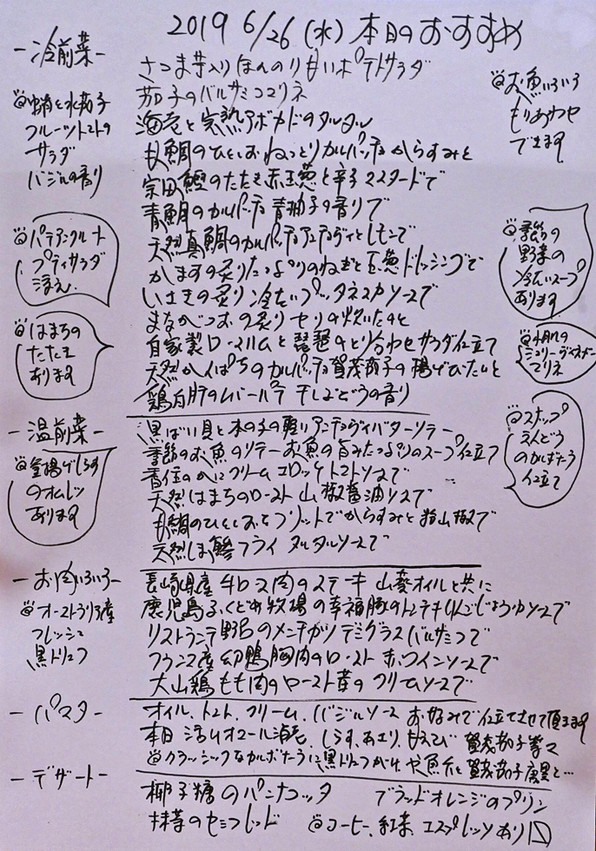 2019 6/26 (水) 本日のおすすめ
-冷前菜-
さつま芋入りほんのり甘いポテトサラダ
茄子のバルサミコマリネ
海老と完熟アボカドのタルタル
甘鯛のひと
ねっとりカルパッチョ からすみと
宗田鰹のたたき 赤玉葱と辛子マスタードで
青鯛のカルパッチョ 青柚子の香りで
天然真鯛のカルパッチョ アンディヴィとレモンで
かますの炙り たっぷりのねぎと玉葱ドレッシングで
いさきの炙り 冷たいプッタネスカソースで
まながつおの炙り セリの
自家製ロースハムと琵琶のとり合わせ サラダ仕立て
天然かんぱちのカルパッチョ 賀茂茄子の揚げびたしと
鶏白肝のムース パテ 干しぶどうの香り
蛸と水茄子
フルーツトマトの
サラダ
バジルの香り
パテアンクルート
プティサラダ
添え
はまちの
たたき
あります
お魚いろいろ
もりあわせ
できます
季節の
野菜の
冷たいスープ
あります
マリネ
スナップ
えんどう
のカルボナーラ
仕立て
-温前菜-
黒ばい貝と木の子の軽いアンチョヴィバターソテー
季節のお魚のソテー お魚の旨みたっぷりのスープ仕立て
香住のかにクリームコロッケ トマトソースで
天然はまちのロースト 山椒醤油ソースで
甘鯛のひと
リゾットで からすみと
山椒で
天然しま鯵フライ タルタルソースで
釜揚げしらす
のオムレツ
あります
-お肉いろいろ-
長崎県産牛ロース肉のステーキ 山葵オイルと共に
鹿児島ふくどめ牧場の幸福豚のトンテキ りんごじょうゆソースで
リストランテ野呂のメンチカツ デミグラスバルサミコで
フランス産幼鴨胸肉のロースト 赤ワインソースで
大山鶏もも肉のロースト 茸のクリームソースで
オーストラリア産
フレッシュ
黒トリュフ
-パスタ-
オイル、トマト、クリーム、バジルソース お好みで仕立てさせて頂きます
本日 活オマール海老、しらす、あさり、甘えび 賀茂茄子等々
クラッシックなカルボナーラに黒トリュフがけ や魚介と賀茂茄子
-デザート-
椰子糖のパンナコッタ ブラッドオレンジのプリン
抹茶のセミフレッド コーヒー、紅茶 エスプレッソあり